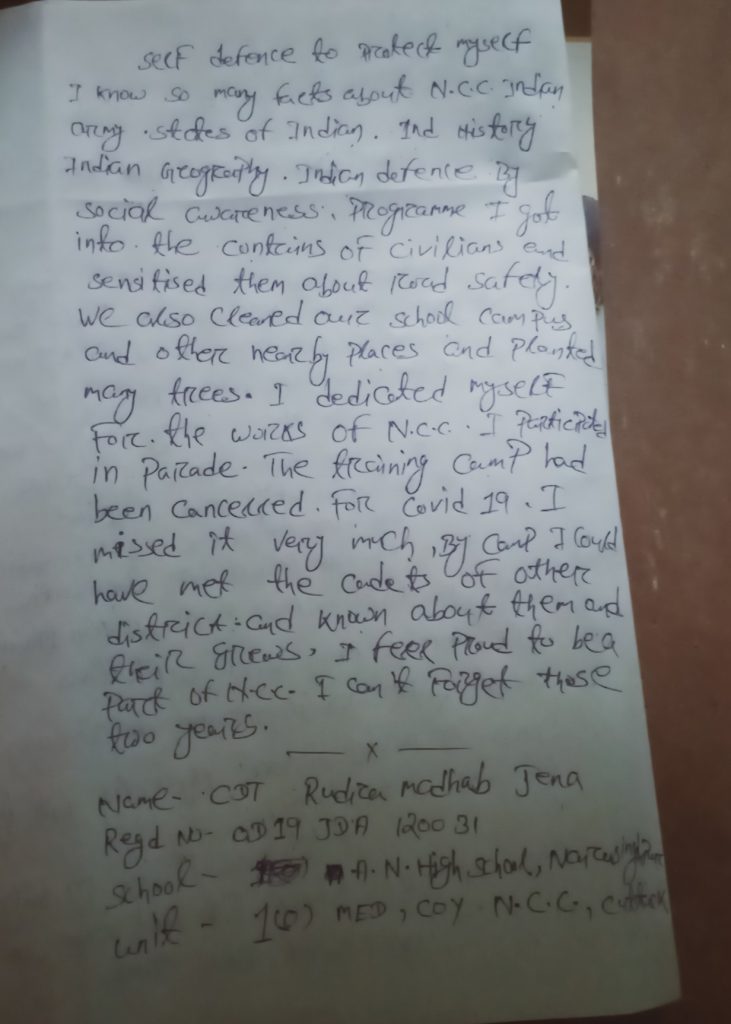 self defence to Protect myself
I know so many facts about N.C.C. Indian
army. states of Indian. Ind History
Indian Geography. Indian defence By
social awareness. Programme I got
into the contains of civilians and
sensitised them about Road safety.
We also cleaned our school campus
and other nearby places and planted
many trees. I dedicated myself
For. the works of N.C.C. I Participated
in Parade. The training camp had
been cancelled. For Covid 19. I
missed it very much, By camp I could
have met the cadets of other
district. and known about them and
their. I feel Proud to be a
Part of N.C.C. I can't Forget those
two years.
— x —
Name- CDT Rudra madhab Jena
Regd No- OD19 JDA 120031
school- A. N. High School, Narasinghpur
unit - 1(O) MED, COY N.C.C., Cuttack